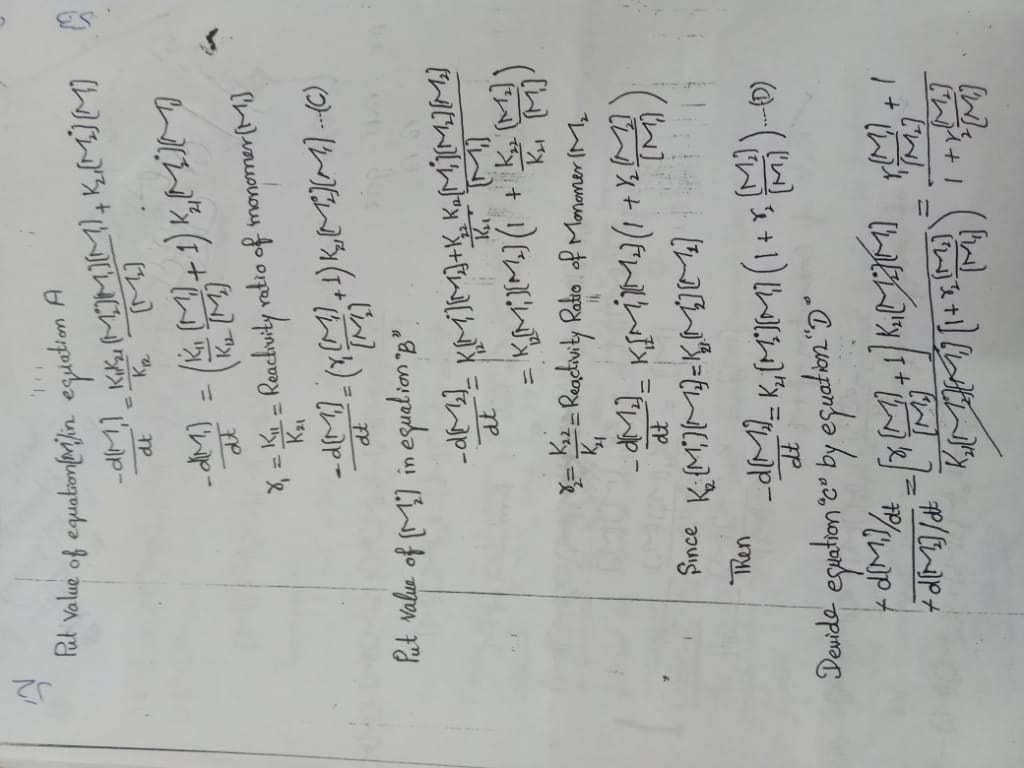 52
53
Put value of equation [M₁•] in equation A
-d[M₁]/dt = K₁₁K₂₁/K₁₂ [M₂•][M₁][M₁]/[M₂] + K₂₁[M₂•][M₁]
-d[M₁]/dt = (K₁₁/K₁₂ [M₁]/[M₂] + 1) K₂₁[M₂•][M₁]
r₁ = K₁₁/K₂₁ = Reactivity ratio of monomer [M₁]
-d[M₁]/dt = (r₁ [M₁]/[M₂] + 1) K₂₁[M₂•][M₁] ...(C)
Put value of [M₂•] in equation "B"
-d[M₂]/dt = K₁₂[M₁•][M₂] + K₂₂ K₁₂/K₂₁ [M₁•][M₂][M₂]/[M₁]
= K₁₂[M₁•][M₂] (1 + K₂₂/K₂₁ [M₂]/[M₁])
r₂ = K₂₂/K₂₁ = Reactivity Ratio of Monomer M₂
-d[M₂]/dt = K₁₂[M₁•][M₂] (1 + r₂ [M₂]/[M₁])
Since K₁₂[M₁•][M₂] = K₂₁[M₂•][M₁]
Then
-d[M₂]/dt = K₂₁[M₂•][M₁] (1 + r₂ [M₂]/[M₁]) ...(D)
Devide equation "C" by equation "D"
+d[M₁]/dt / +d[M₂]/dt = [r₁ [M₁]/[M₂] + 1] K₂₁[M₂•][M₁] / K₂₁[M₂•][M₁] [1 + r₂ [M₂]/[M₁]) = r₁ [M₁]/[M₂] + 1 / 1 + r₂ [M₂]/[M₁]